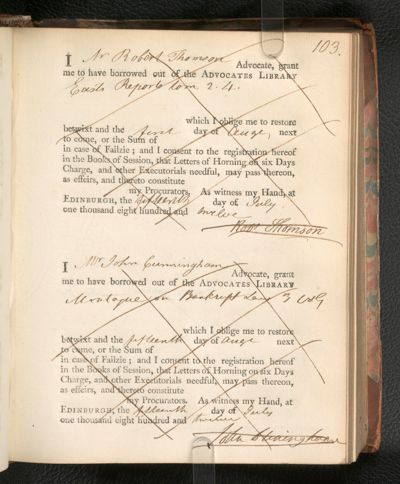 103.
I Mr Robert Thomson Advocate, grant
me to have borrowed out of the ADVOCATES LIBRARY
Easts Reports tom 2. 4.
which I oblige me to restore
betwixt and the first day of Augt, next
to come, or the Sum of
in case of Failzie; and I consent to the registration hereof
in the Books of Session, that Letters of Horning on six Days
Charge, and other Executorials needful, may pass thereon,
as effeirs, and thereto constitute
my Procurators. As witness my Hand, at
EDINBURGH, the fifteenth day of July
one thousand eight hundred and twelve
Robt Thomson
I Mr John Cunningham Advocate, grant
me to have borrowed out of the ADVOCATES LIBRARY
Montague on Bankrupt Law 3
which I oblige me to restore
betwixt and the fifteenth day of Augt next
to come, or the Sum of
in case of Failzie; and I consent to the registration hereof
in the Books of Session, that Letters of Horning on six Days
Charge, and other Executorials needful, may pass thereon,
as effeirs, and thereto constitute
my Procurators. As witness my Hand, at
EDINBURGH, the fifteenth day of July
one thousand eight hundred and twelve
John Cunningham